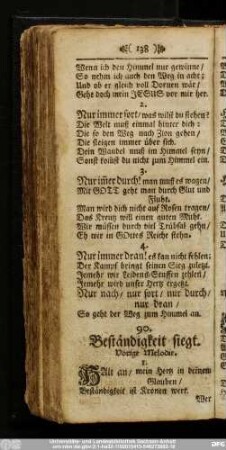 138
Wenn ich den Himmel nur gewinne/
So nehm ich auch den Weg in acht;
Und ob er gleich voll Dornen wär/
Geht doch mein JESUS vor mir her.
2.
Nur immer fort/ was wilst du stehen?
Die Welt muß einmal hinter dich:
Die so den Weg nach Zion gehen/
Die steigen immer über sich.
Dein Wandel muß im Himmel seyn/
Sonst kömst du nicht zum Himmel ein.
3.
Nur im̄er durch! man muß es wagen/
Mit GOTT geht man durch Glut und
Fluht.
Man wird dich nicht auf Rosen tragen/
Das Kreutz will einen guten Muht.
Wir müssen durch viel Trübsal gehn/
Eh wir in GOttes Reiche stehn.
4.
Nur immer dran! es kan nicht fehlen:
Der Kampf bringt seinen Sieg zuletzt.
Jemehr wir Leidens-Stuffen zehlen/
Jemehr wird unser Hertz ergetzt.
Nur nach/ nur fort/ nur durch/
nur dran/
So geht der Weg zum Himmel an.
90.
Beständigkeit siegt.
Vorige Melodie.
1.
HAlt an/ mein Hertz in deinem
Glauben/
Beständigkeit ist Kronen wert.
Wer
Universitäts- und Landesbibliothek Sachsen-Anhalt